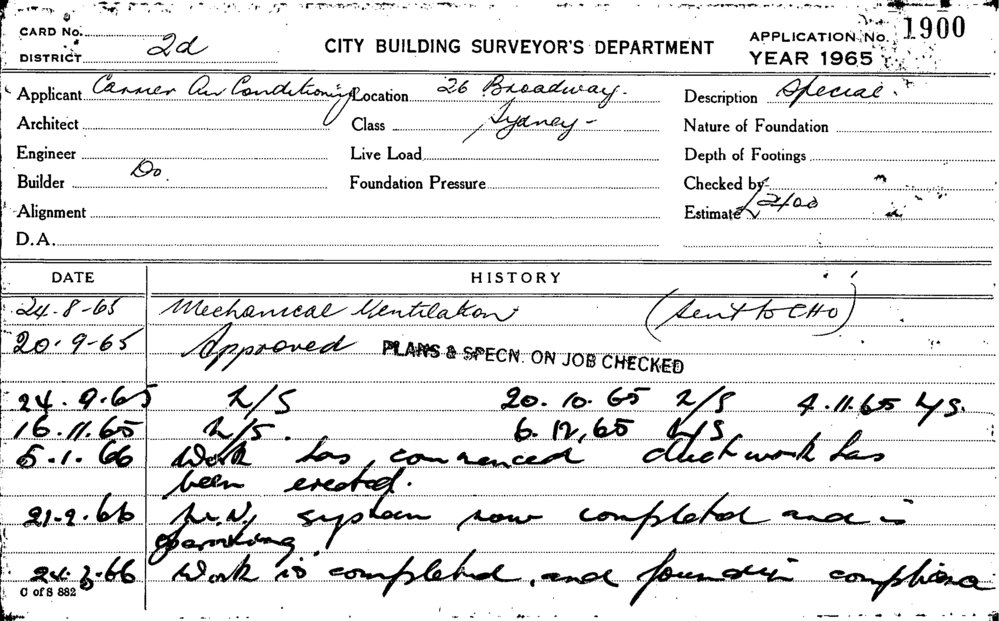 CARD No.
DISTRICT 2d
CITY BUILDING SURVEYOR'S DEPARTMENT
APPLICATION No. 1900
YEAR 1965
Applicant Carrier Air Conditioning Location 26 Broadway. Description Special.
Architect Class Sydney- Nature of Foundation
Engineer Live Load Depth of Footings
Builder Do. Foundation Pressure Checked by
Alignment Estimate £2400
D.A.
DATE HISTORY
24.8-65 Mechanical Ventilation (Sent to CHO)
20.9-65 Approved PLANS & SPECN. ON JOB CHECKED
24.9.65 N/S 20.10.65 N/S 4.11.65 N/S.
16.11.65 N/S. 6.12.65 N/S
5.1.66 Work has commenced duct work has
been erected.
21.2.66 system now completed and is
operating.
24.3.66 Work is completed, and found in
C of S 882